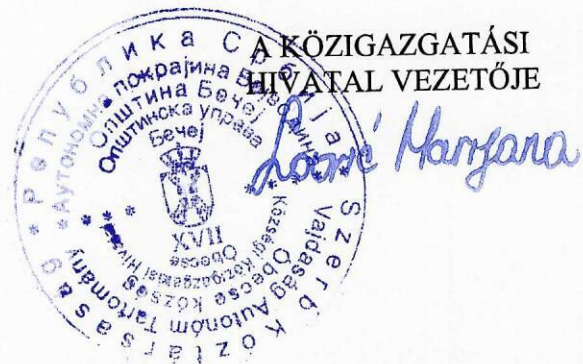 A KÖZIGAZGATÁSI
HIVATAL VEZETŐJE
Република Србија
Аутономна покрајина Војводина
Општина Бечеј
Општинска управа
Бечеј
XVII
Szerb Köztársaság
Vajdaság Autonóm Tartomány
Óbecse község
Községi Közigazgatási Hivatal
Óbecse